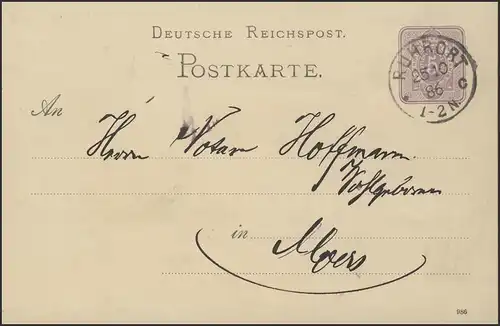 DEUTSCHE REICHSPOST.
POSTKARTE.
RUHRORT
25 10
86
* 1-2N. C
An
Herrn Notar Hoffmann.
Wohlgeboren
in Moers
986